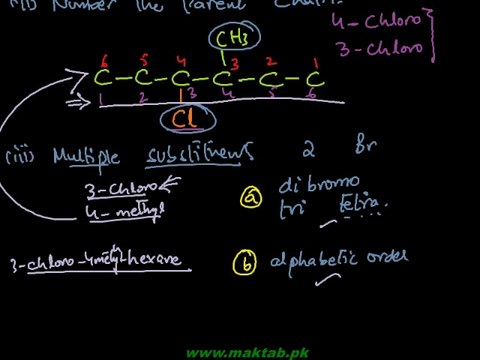 (ii) Number the Parent Chain
4-Chloro
3-chloro
CH3
6 5 4 3 2 1
C-C-C-C-C-C
1 2 3 4 5 6
Cl
(iii) Multiple substitnews 2 Br
3-chloro
4-methyl
a di bromo
tri tetra
3-chloro-4methyl-hexane
b alphabetic order
www.maktab.pk